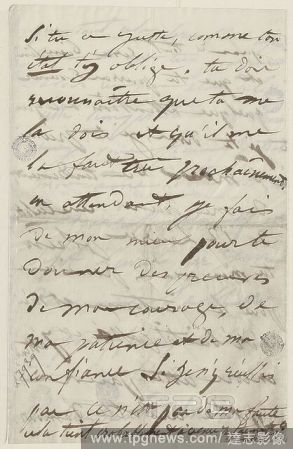 Si tu es juste, comme ton
état t'y oblige, tu dois
reconnaître que tu me
la dois et qu'il me
la faut très prochainement,
en attendant, je fais
de mon mieux pour te
donner des preuves
de mon courage, de
ma patience et de ma
confiance. Si je n'y réussis
pas ce n'est pas de ma faute
cela tient
www.tpgnews.com 達志影像